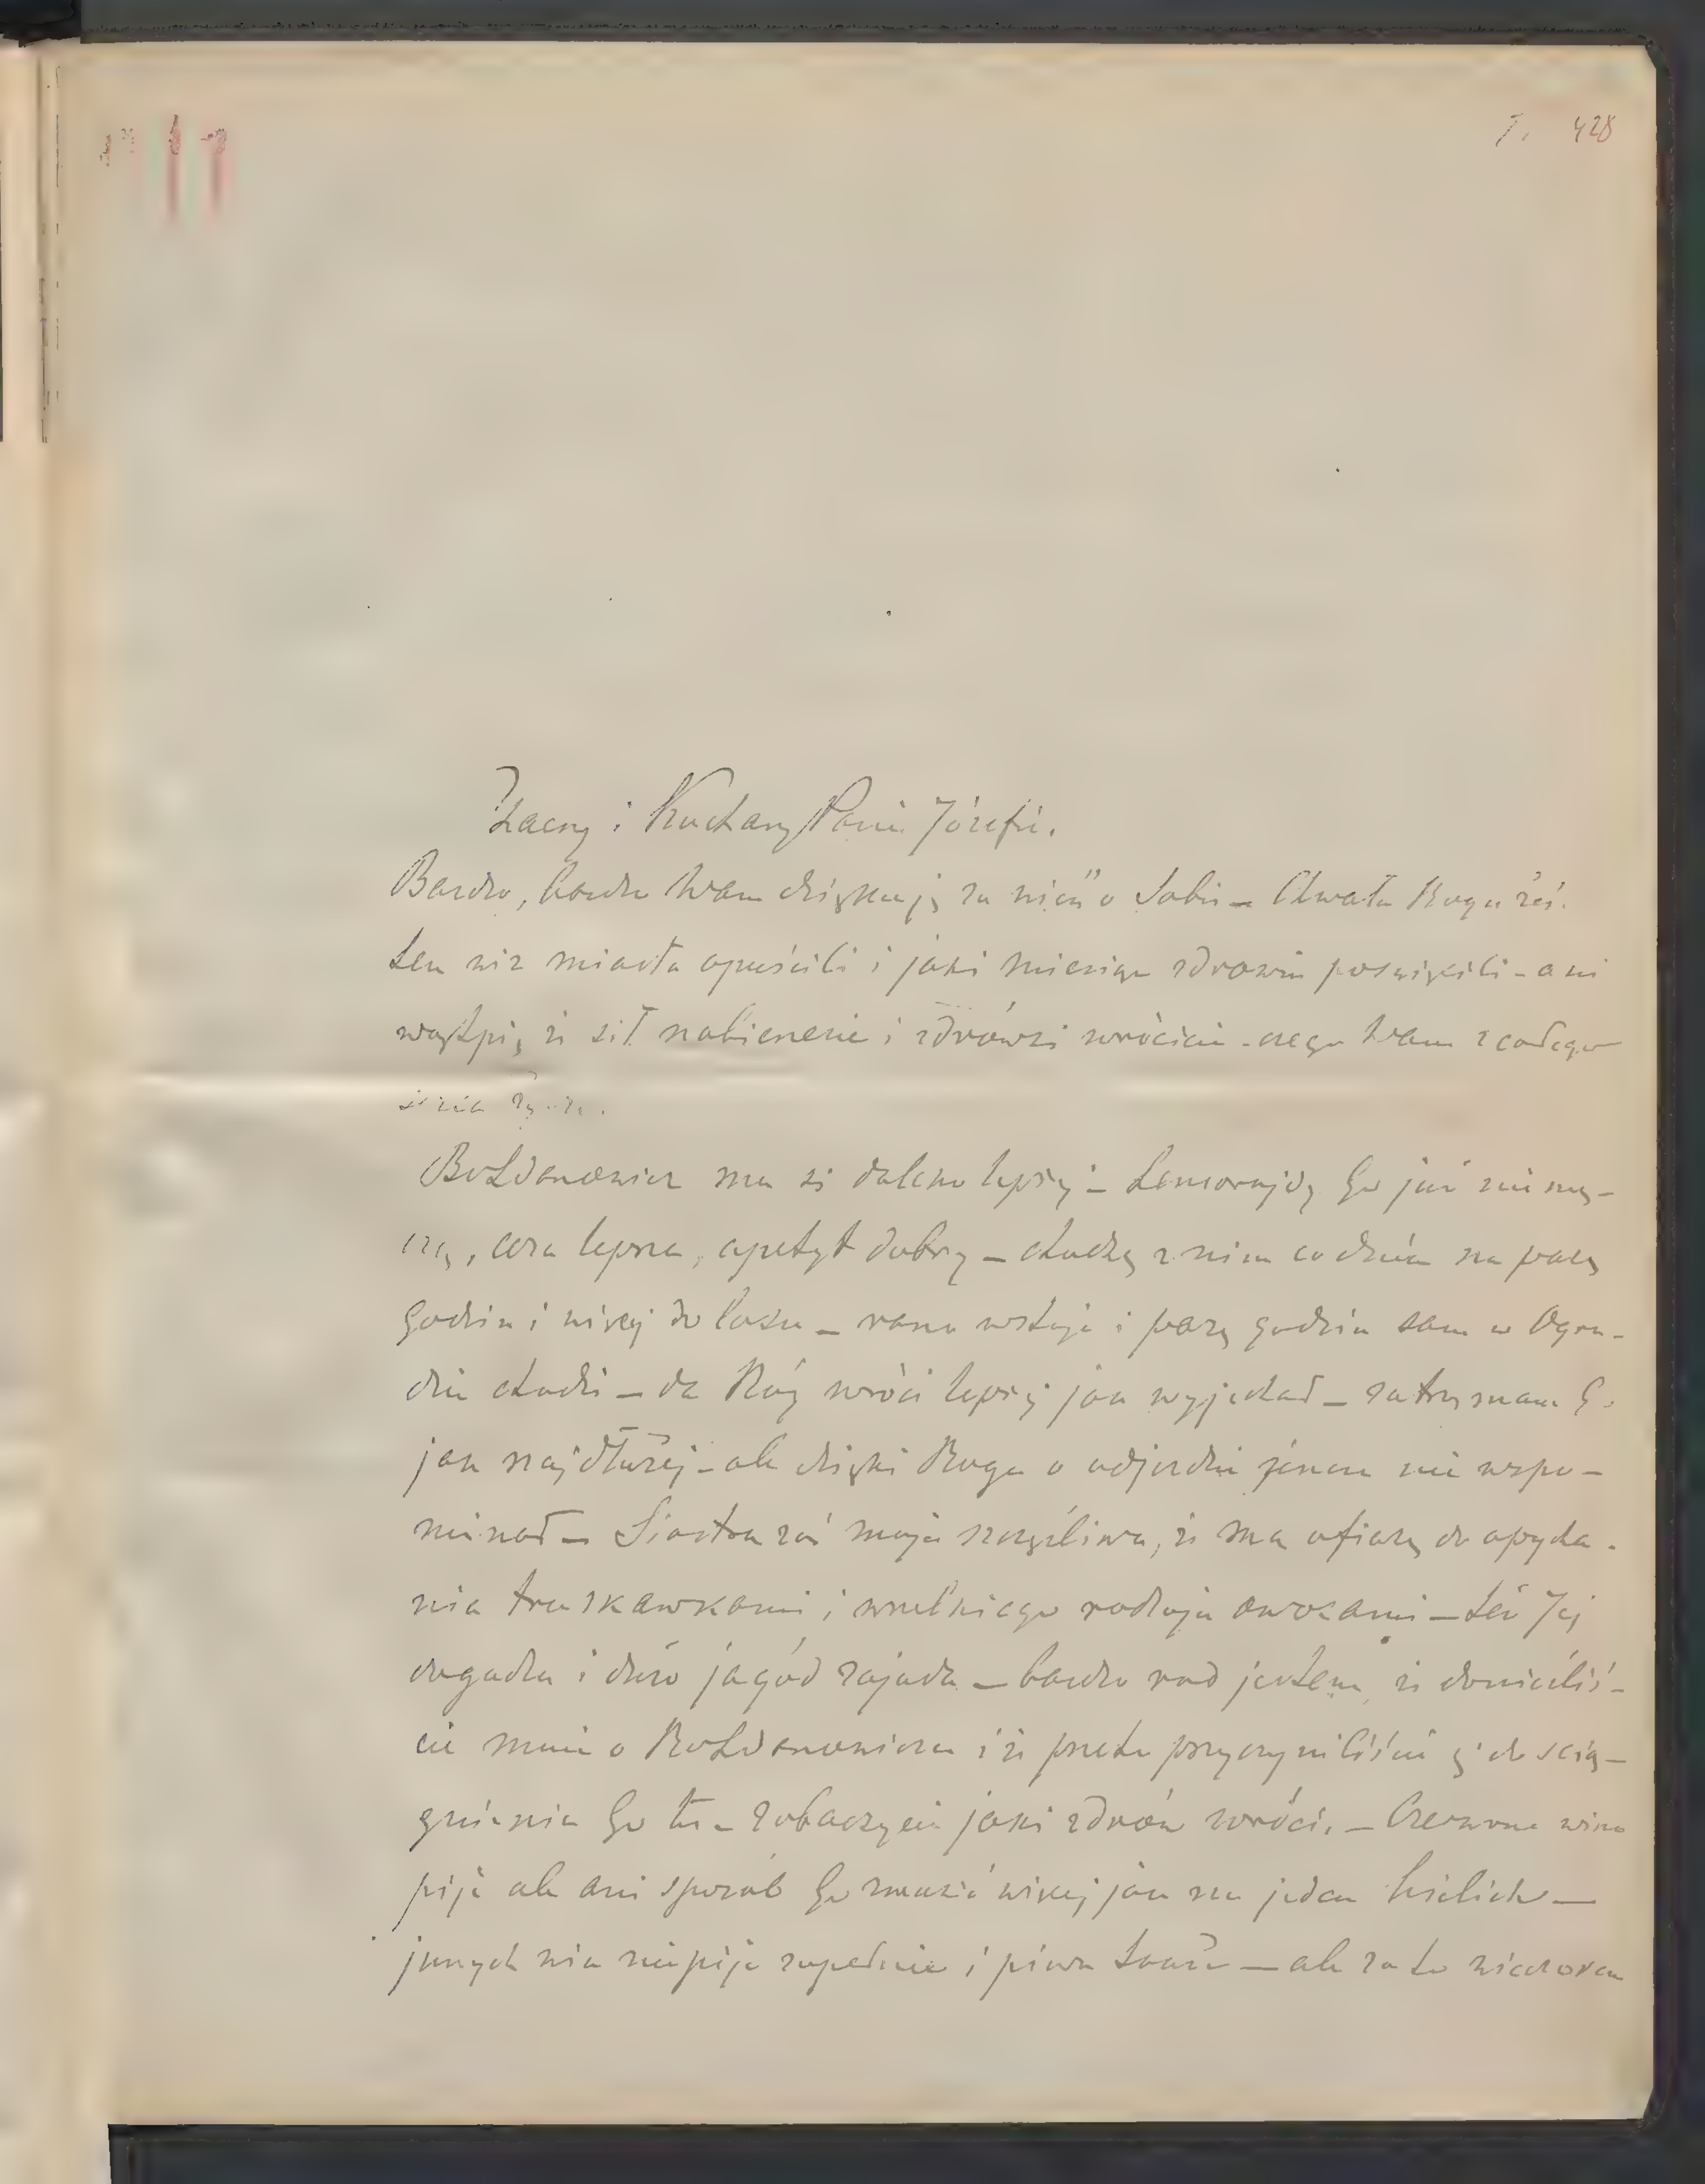 T. 428
Zacny i Kochany Panie Józefie.
Bardzo, bardzo Wam dziękuję za wieść o Sobie – Chwała Bogu żeś-
cie miasto opuścili i jaki miesiąc zdrowiu poświęcili – a nie
wątpię, że sił nabierzecie i zdrowsi wrócicie – czego Wam z całego
serca życzę.
Bohdanowicz ma się daleko lepiej – hemoroidy Go już nie mę-
czą, cera lepsza, apetyt dobry – chodzę z nim co dzień na parę
godzin i więcej do lasu – rano wstaje i parę godzin sam w Ogro-
dzie chodzi – da Bóg wróci lepiej jak wyjechał – zatrzymam Go
jak najdłużej – ale dzięki Bogu o odjeździe jeszcze nie wspo-
minał – Siostra zaś moja szczęśliwa, że ma ofiarę do opycha-
nia truskawkami i wszelkiego rodzaju owocami – też Jej
dogadza i dużo jagód zajada – bardzo rad jestem, że donieśliś-
cie mnie o Bohdanowiczu i że przeto przyczyniliście się do ścią-
gnienia Go tu – zobaczycie jaki zdrów wróci. – Czerwone wino
pije ale ani sposób Go zmusić więcej jak na jeden kielich –
innych win nie pije zupełnie i piwa także – ale za to wieczorem